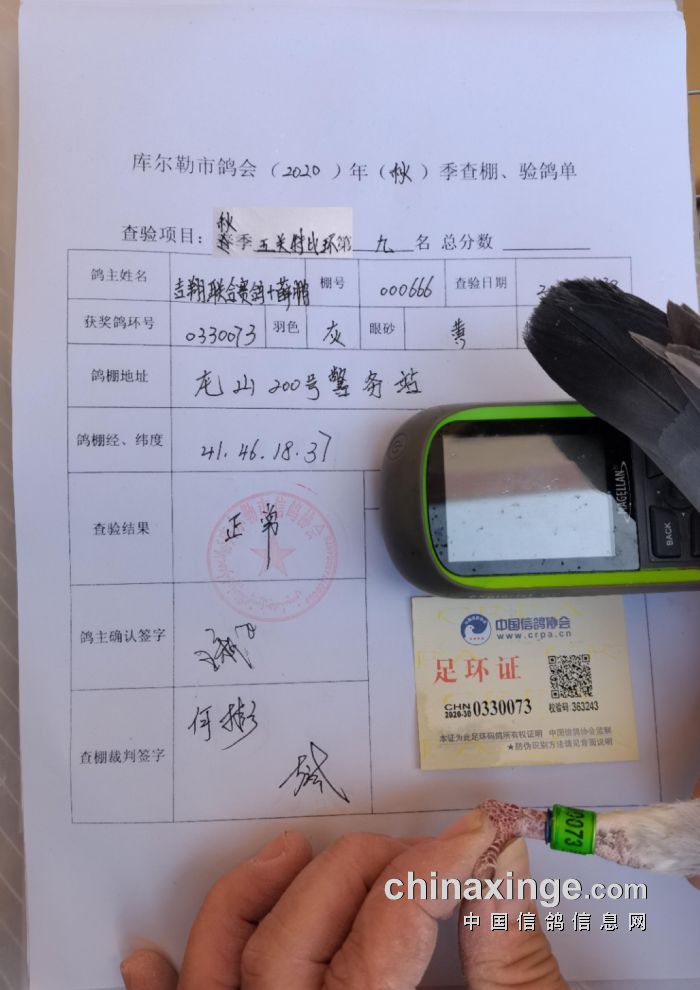 库尔勒市鸽会（2020）年（秋）季查棚、验鸽单
秋
查验项目：春季五关特比环第 九 名 总分数
鸽主姓名 吉翔联合赛鸽+薛鹏 棚号 000666 查验日期
获奖鸽环号 0330073 羽色 灰 眼砂 黄
鸽棚地址 龙山200号警务站
鸽棚经、纬度 41.46.18.37
查验结果 正常
鸽主确认签字
查棚裁判签字 何彬
MAGELLAN
BACK
中国信鸽协会
www.crpa.cn
足环证
CHN
2020-30 0330073 校验码:363243
本证为此足环码鸽所有权证明 中国信鸽协会监制
★防伪识别方法请见背面说明
0073
chinaxinge.com
中国信鸽信息网